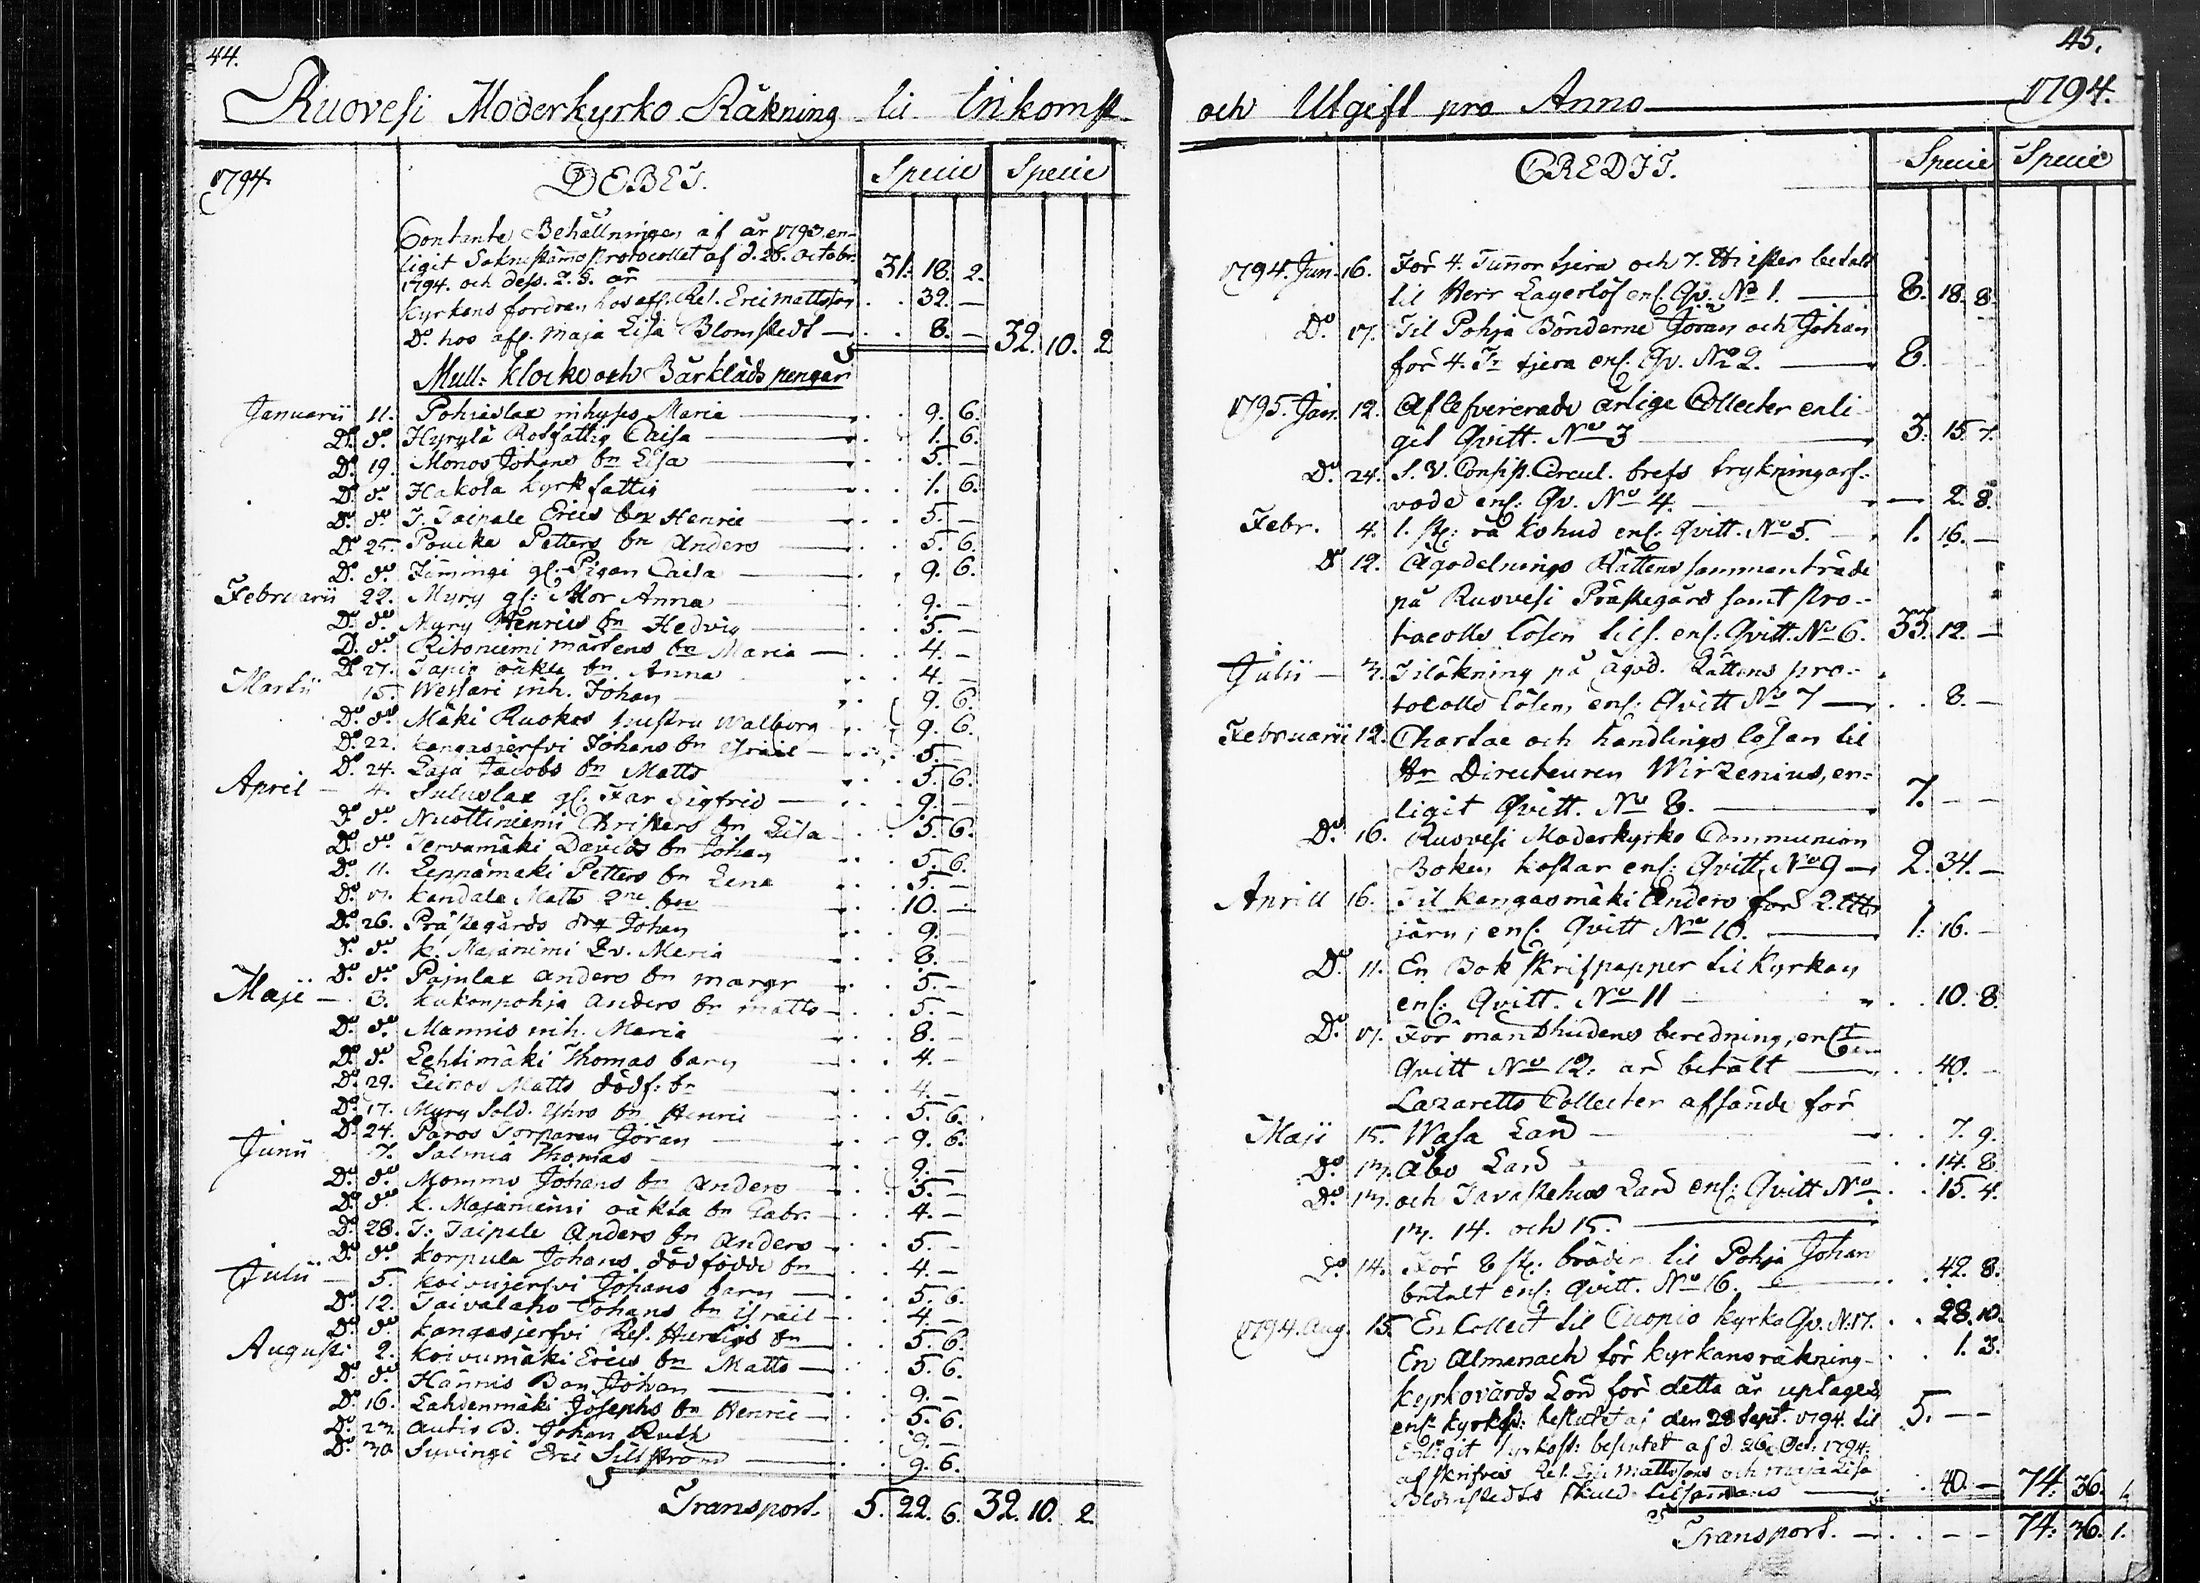 44.
Ruovesi Moderkyrko Räkning til Inkomst
1794. DEBET. Specie Specie
Contante Behållningen af år 1793. en-
ligit Sokneståmo Protocollet af d. 26. Octobr.
1794. och dess. 2. §. är 31. 18. 2.
Kyrkans fordran hos afl. Ref. Eric Mattsson . . 32. —
Do. hos afl. Maja Lisa Blomstedt — . . 8. — 32. 10. 2
Mull- Klocko och Bårkläds pengar
Januarii 11. Pohiaslax inhyses Maria — . . 9. 6.
Do. do. Hyrylä Rotfattig Caisa — . . 1. 6.
Do. 19. Monos Johans bn Lisa — . . 5. —
Do. do. Hakola kyrkfattig — . . 1. 6.
Do. do. J. Taipale Erics bn Henric — . . 5. —
Do. 25. Poucka Petters bn Anders — . . 5. 6.
Do. do. Jämingi gl: Pigan Caisa — . . 9. 6.
Februarii 22. Myry gl: Mor Anna — . . 9. —
Do. do. Myry Henrics bn Hedvig — . . 5. —
D. do. Ritoniemi Mårtens bn Maria — . . 4. —
Do. 27. Tapio oäkta bn Anna . . 4. —
Martii 15. Wessari inh. Johan . . 9. 6.
Do. do. Mäki Ruokos hustru Walborg . . 9. 6.
Do. 22. Kangasjerfvi Johans bn Israel — . . 5. —
Do. 24. Laja Jacobs bn Matts . . 5. 6.
April — 4. gl. Far Sigfrid — . . 9. —
D. do. Nuottiniemi Christers bn Lisa . . 5. 6.
Do. do. Tervamäki Davids bn Johan . . 5. 6.
Do. 11. Leppämäki Petters bn Lena . . 5. —
Do. 17. Kandala Matts 2ne bn . . 10. —
Do. 26. Prästegårds Johan . . 9. —
D. do. K. Majanimi Maria . . 8. —
Do. do. Pajulax Anders bn margr . . 5. —
Maji — 3. Kukonpohja Anders bn Matts — . . 5. —
Do. do. Mannis inh. Maria . . 8. —
Do. do. Lehtimäki Thomas barn . . 4. —
Do. 29. Leinos Matts dödf: bn . . 4. —
Do. 17. Myry Sold. bn Henric . . 5. 6.
Do. 24. Paros Torparen Göran . . 9. 6.
Junii 7. Salmia Thomas . . 9. —
Do. do. Mommo Johans bn Anders . . 5. —
D. do. K. Majaniemi oäkta bn Gabr. . . 4. —
Do. 28. J: Taipale Anders bn Anders . . 5. —
D. do. Korpula Johans dödfödde bn . . 4. —
Julii — 5. Koivujerfvi Johans barn — . . 5. 6.
Do. 12. Taivalaho Johans bn Israel — . . 4. —
Do. do. Kangasjerfvi Ref. bn . . 5. 6.
Augusti 2. Koivumäki Erics bn Matts — . . 5. 6.
D. do. Hannis Bon. Johan — . . 9. —
Do. 16. Lahdenmäki Josephs bn Henric — . . 5. 6.
Do. 23. Autio B. Johan Ruth . . 9. —
Do. 30. Suvingi Eric Sillström — . . 9. 6.
Transport. 5. 22. 6. 32. 10. 2.
45.
och Utgift pro Anno 1794.
CREDIT. Specie Specie
1794. Jun. 16. För 4. Tunnor tjera och 7. Hrister betalt
til Herr Lagerlöf enl. Qv. No 1. — 8. 18. 8.
Do 17. Til Pohja Bönderne Göran och Johan
för 4. Tr tjera enl. Qv. No 2. — 8. — —
1795. Jan. 12. Aflefvererade årlige Collecter enli-
git Qvitt. No 3 — 3. 15. 7.
Do. 24. S. V. Consist. Circul. brefs trykningars-
vode enl. Qv. No 4. — 2. 8.
Febr. 4. 1. st: rå Kohud enl. Qvitt. No 5. — 1. 16. —
Do 12. Ägodelnings Rättens sammanträde
på Ruovesi Prästegård samt Pro-
tocolls lösen tils. enl: Qvitt. No 6. 33. 12. —
Julii — 3. Tilökning på ägod. Rättens pro-
tocolls lösen, enl: Qvitt No 7 — . . 8. —
Februarii 12. Chartae och handlings lösen til
Hr Directeuren Wirzenius, en-
ligit Qvitt. No 8. — 7. — —
Do. 16. Ruovesi Moderkyrko Communion
Boken kostar enl: Qvitt. No 9 — 2. 34. —
Aprill 16. Til Kangasmäki Anders för 2. ltt
järn, enl. Qvitt No 10. — 1. 16. —
Do. 11. En Bok skrifpapper til Kyrkan
enl: Qvitt. No 11 — . . 10. 8.
Do. 17. För manshudens beredning, enl:
Qvitt No 12. är betalt — . . 40. —
Lazaretts Collecter afsände för
Maji 15. Wasa Län — . . 7. 9.
Do. 13. Åbo Län . . 14. 8.
Do. 13. och Tavastehus Län enl: Qvitt No. . . 15. 4.
13. 14. och 15. —
Do. 14. För 8 st: bräder til Pohja Johan
betalt enl: Qvitt. No 16. — . . 42. 8.
1794. Aug. 15. En Collect til Cuopio kyrka Qv. N. 17. . . 28. 10.
En Almanach för kyrkans räkning . . 1. 3.
Kyrkovärds Lön för detta år uptagen
enl: kyrkost: beslutet af den 28 Sept. 1794. til 5. — —
Enligit kyrkost: beslutet af d. 26 Oct. 1794.
afskrifves Ref. Eric Mattssons och Maja Lisa
Blomstedts skuld tilsammans — . . 40. — 74. 36. 1
Transport. — . . — — 74. 36. 1.